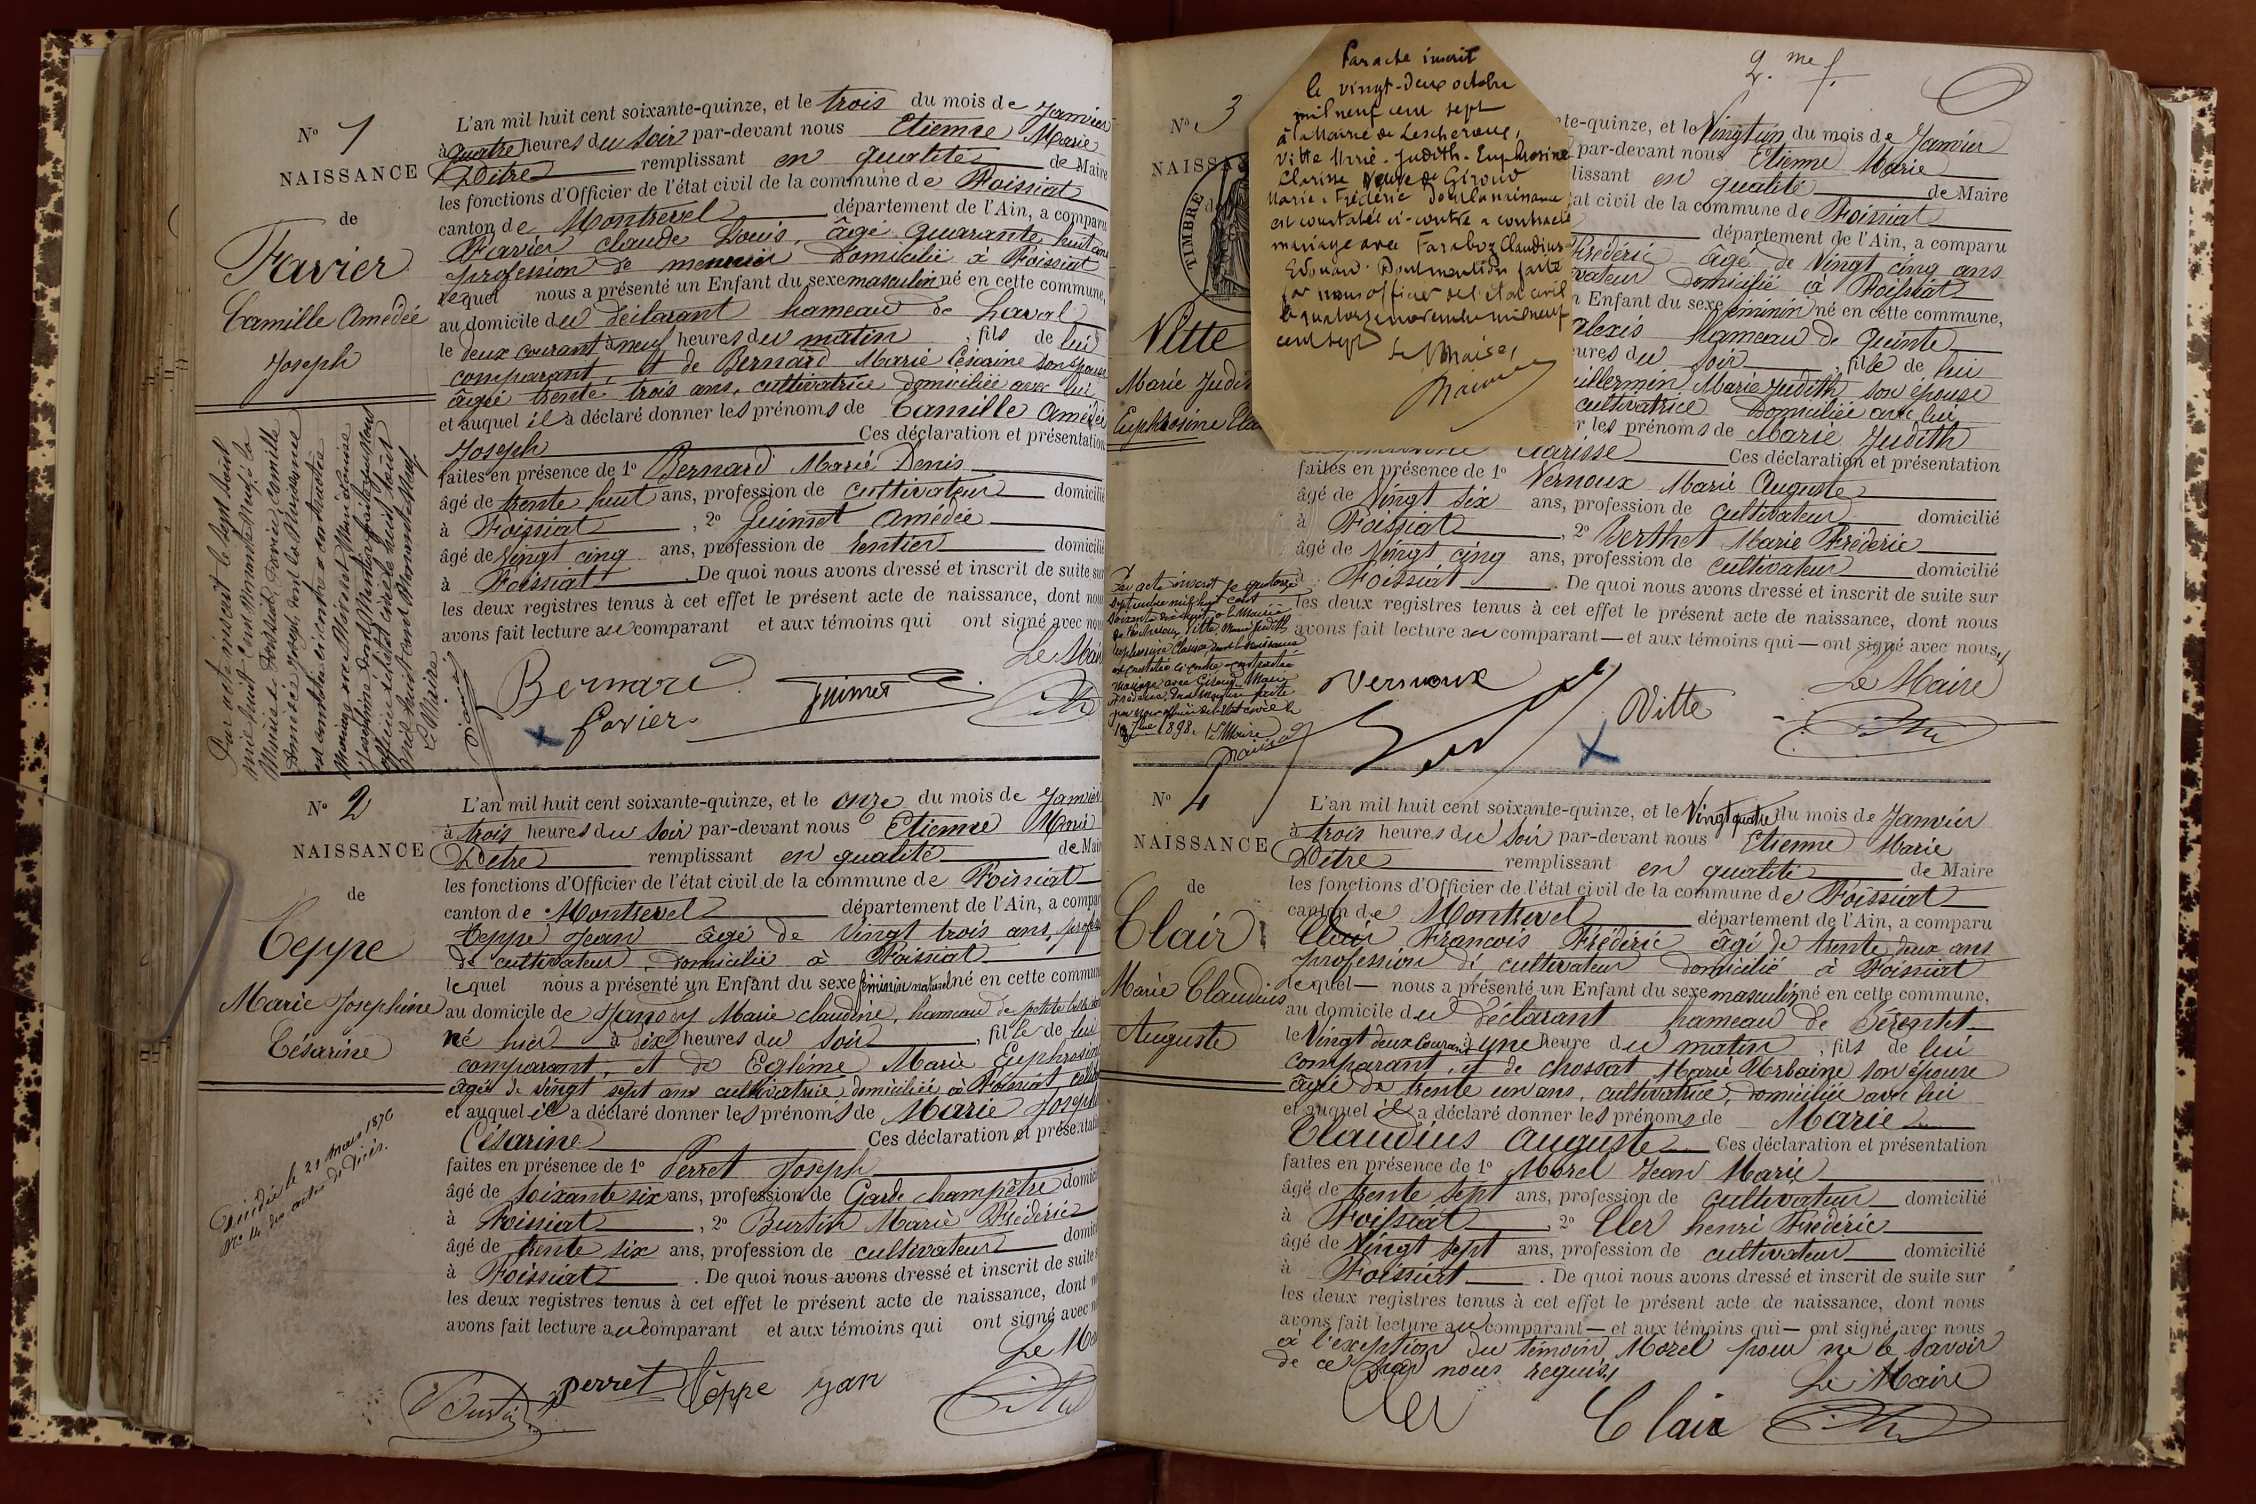 N° 1
NAISSANCE
de
Favier
Camille Amédée
Joseph
L'an mil huit cent soixante-quinze, et le trois du mois de Janvier
à quatre heures du soir par-devant nous Etienne Marie
Dêtre remplissant en qualité de Maire
les fonctions d'Officier de l'état civil de la commune de Foissiat
canton de Montrevel département de l'Ain, a comparu
Favier Claude Louis, âgé quarante huit ans
profession de menuisier Domicilié à Foissiat
lequel nous a présenté un Enfant du sexe masculin né en cette commune,
au domicile du déclarant hameau de Laval
le deux courant à neuf heures du matin, fils de lui
comparant, et de Bernard Marie Césarine son épouse
âgée trente trois ans, cultivatrice domiciliée avec lui
et auquel il a déclaré donner les prénoms de Camille Amédée
Joseph Ces déclaration et présentation
faites en présence de 1° Bernard Marie Denis
âgé de trente huit ans, profession de cultivateur domicilié
à Foissiat, 2° Guimet Amédée
âgé de vingt cinq ans, profession de rentier domicilié
à Foissiat. De quoi nous avons dressé et inscrit de suite sur
les deux registres tenus à cet effet le présent acte de naissance, dont nous
avons fait lecture au comparant et aux témoins qui ont signé avec nous
Le Mai
Bernard Guimet
favier
Par acte inscrit le sept août
mil huit cent nonante neuf à la
Mairie de Foissiat, Favier Camille
Amédée Joseph dont la Naissance
est constatée ci-contre a contracté
Mariage avec
Joséphine dont Mention faite par Nous
officier de l'état civil le huit août
mil huit cent Nonante Neuf
Le Maire
N° 2
NAISSANCE
de
Teppe
Marie Josephine
Césarine
Décédée le 21 mars 1876
N° 14 des actes de décès.
L'an mil huit cent soixante-quinze, et le onze du mois de Janvier
à trois heures du soir par-devant nous Etienne Marie
Dêtre remplissant en qualité de Mair
les fonctions d'Officier de l'état civil de la commune de Foissiat
canton de Montrevel département de l'Ain, a compar
Teppe Jean âgé de vingt trois ans, profes
de cultivateur, domicilié à Foissiat
lequel nous a présenté un Enfant du sexe féminin naturel né en cette commun
au domicile de Jandy Marie Claudine, hameau de petite
né hier à dix heures du soir, fille de lui
comparant, et de Eglème Marie Euphrosin
âgée de vingt sept ans cultivatrice domiciliée à Foissiat,
et auquel il a déclaré donner les prénoms de Marie Joseph
Césarine Ces déclaration et présentati
faites en présence de 1° Perret Joseph
âgé de soixante six ans, profession de Garde champêtre domici
à Foissiat, 2° Burtin Marie Frédéric
âgé de trente six ans, profession de cultivateur domici
à Foissiat. De quoi nous avons dressé et inscrit de suite
les deux registres tenus à cet effet le présent acte de naissance, dont n
avons fait lecture au comparant et aux témoins qui ont signé avec n
Le M
Burtin perret Teppe jan
2.me f.
N° 3
NAISSA
TIMBRE
Vitte
Marie Judi
Euphrosine Cla
Par acte inscrit
le vingt-deux octobre
mil neuf cent sept
à la Mairie de Lescheroux,
Vitte Marie-Judith-Euphrosine
Clarisse veuve de Giroud
Marie-Frédéric dont la naissance
est constatée ci-contre a contracté
mariage avec Faraboz Claudius
Edouard. Dont mention faite
par nous officier de l'état civil
le quatorze novembre mil neuf
cent sept
Le Maire,
te-quinze, et le Vingt un du mois de Janvier
par-devant nous Etienne Marie
lissant en qualité de Maire
at civil de la commune de Foissiat
département de l'Ain, a comparu
Frédéric âgé de vingt cinq ans
vateur domicilié à Foissiat
n Enfant du sexe féminin né en cette commune,
alexis hameau de Quinte
eures du soir, fille de lui
uillermin Marie Judith son épouse
cultivatrice domiciliée avec lui
r les prénoms de Marie Judith
Clarisse Ces déclaration et présentation
faites en présence de 1° Vernoux Marie Auguste
âgé de vingt six ans, profession de cultivateur domicilié
à Foissiat, 2° Berthet Marie Frédéric
âgé de vingt cinq ans, profession de cultivateur domicilié
à Foissiat. De quoi nous avons dressé et inscrit de suite sur
les deux registres tenus à cet effet le présent acte de naissance, dont nous
avons fait lecture au comparant — et aux témoins qui — ont signé avec nous
Le Maire
Vernoux Vitte
Par acte inscrit le quatorze
Septembre mil huit cent
à la Mairie
de Vitte Marie Judith
Euphrosine Clarisse dont la naissance
est constatée ci-contre a contracté
mariage avec Giroud Marie
Frédéric dont mention faite
par nous officier de l'état civil le
1898. Le Maire
N° 4
NAISSANCE
de
Clair
Marie Claudius
Auguste
L'an mil huit cent soixante-quinze, et le Vingt quatre du mois de Janvier
à trois heures du soir par-devant nous Etienne Marie
Dêtre remplissant en qualité de Maire
les fonctions d'Officier de l'état civil de la commune de Foissiat
canton de Montrevel département de l'Ain, a comparu
Clair François Frédéric âgé de trente deux ans
profession de cultivateur domicilié à Foissiat
lequel — nous a présenté un Enfant du sexe masculin né en cette commune,
au domicile du déclarant hameau de Bérentet
le Vingt deux courant à une heure du matin, fils de lui
comparant, et de Chossat Marie Urbaine son épouse
âgée de trente un ans, cultivatrice, domiciliée avec lui
et auquel il a déclaré donner les prénoms de Marie
Claudius Auguste Ces déclaration et présentation
faites en présence de 1° Morel Jean Marie
âgé de trente sept ans, profession de cultivateur domicilié
à Foissiat, 2° Cler henri Frédéric
âgé de vingt sept ans, profession de cultivateur domicilié
à Foissiat. De quoi nous avons dressé et inscrit de suite sur
les deux registres tenus à cet effet le présent acte de naissance, dont nous
avons fait lecture au comparant — et aux témoins qui — ont signé avec nous
à l'exeption du témoin Morel pour ne le savoir
de ce par nous requis
Le Maire
Cler Clair